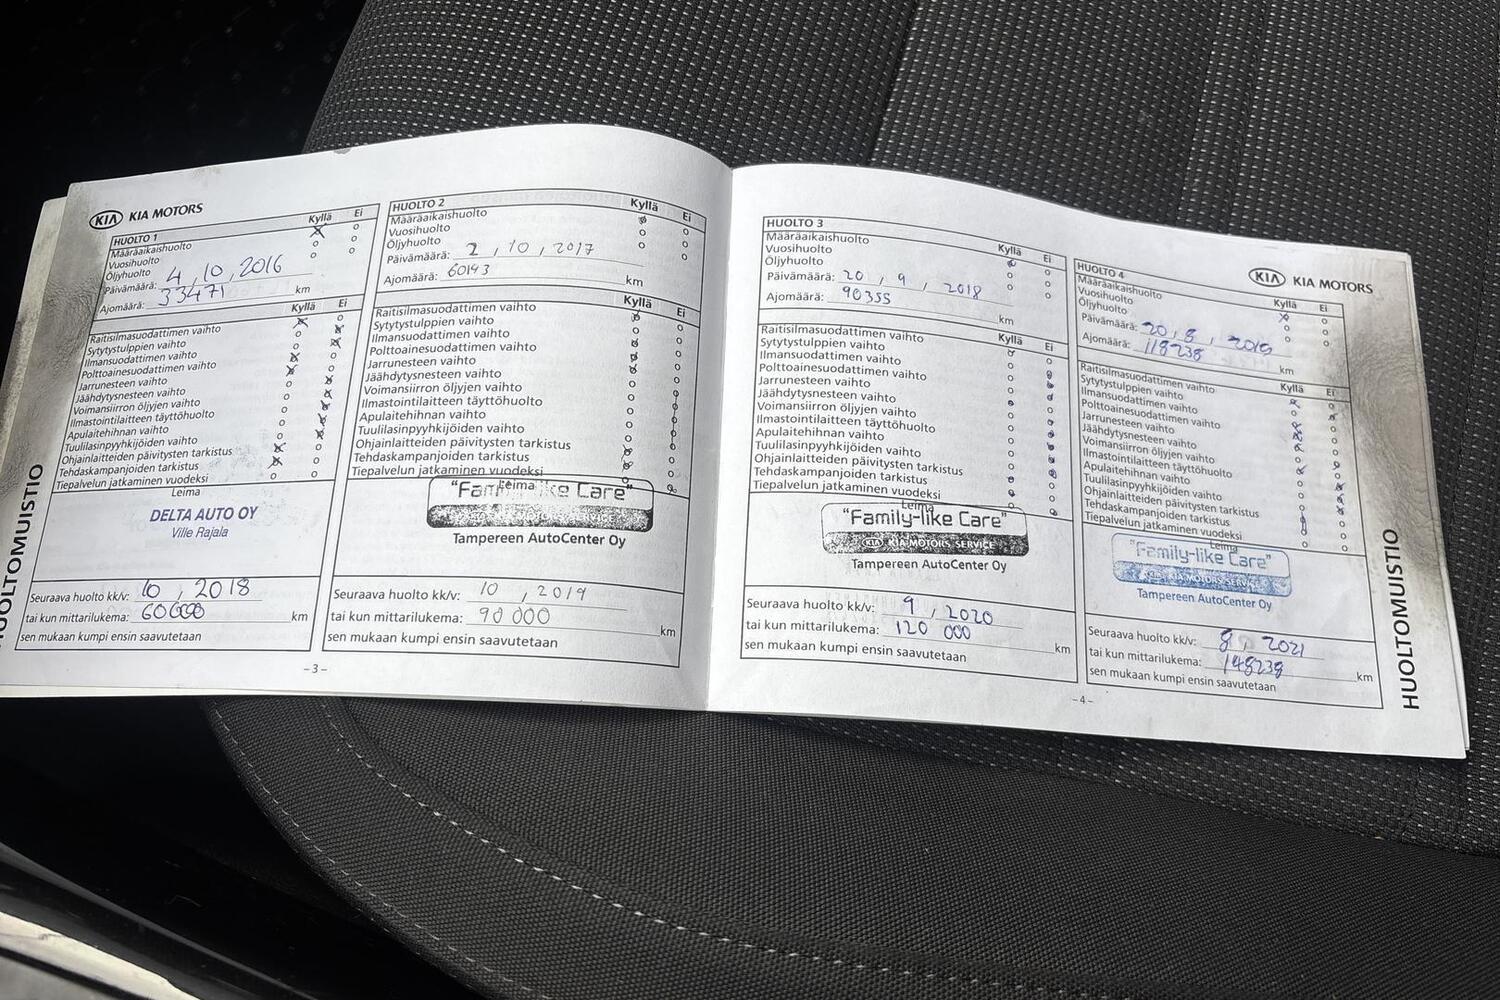 KIA KIA MOTORS
HUOLTO 1 Kyllä Ei
Määräaikaishuolto
Vuosihuolto
Öljyhuolto
Päivämäärä: 4, 10, 2016
Ajomäärä: 33471 km
Kyllä Ei
Raitisilmasuodattimen vaihto
Sytytystulppien vaihto
Ilmansuodattimen vaihto
Polttoainesuodattimen vaihto
Jarrunesteen vaihto
Jäähdytysnesteen vaihto
Voimansiirron öljyjen vaihto
Ilmastointilaitteen täyttöhuolto
Apulaitehihnan vaihto
Tuulilasinpyyhkijöiden vaihto
Ohjainlaitteiden päivitysten tarkistus
Tehdaskampanjoiden tarkistus
Tiepalvelun jatkaminen vuodeksi
Leima
DELTA AUTO OY
Ville Rajala
Seuraava huolto kk/v: 10, 2018
tai kun mittarilukema: 60000 km
sen mukaan kumpi ensin saavutetaan
HUOLTOMUISTIO
HUOLTO 2 Kyllä Ei
Määräaikaishuolto
Vuosihuolto
Öljyhuolto
Päivämäärä: 2, 10, 2017
Ajomäärä: 60193 km
Kyllä Ei
Raitisilmasuodattimen vaihto
Sytytystulppien vaihto
Ilmansuodattimen vaihto
Polttoainesuodattimen vaihto
Jarrunesteen vaihto
Jäähdytysnesteen vaihto
Voimansiirron öljyjen vaihto
Ilmastointilaitteen täyttöhuolto
Apulaitehihnan vaihto
Tuulilasinpyyhkijöiden vaihto
Ohjainlaitteiden päivitysten tarkistus
Tehdaskampanjoiden tarkistus
Tiepalvelun jatkaminen vuodeksi
Leima
"Family-like Care"
KIA MOTORS SERVICE
Tampereen AutoCenter Oy
Seuraava huolto kk/v: 10, 2019
tai kun mittarilukema: 90 000 km
sen mukaan kumpi ensin saavutetaan
-3-
HUOLTO 3 Kyllä Ei
Määräaikaishuolto
Vuosihuolto
Öljyhuolto
Päivämäärä: 20, 9, 2018
Ajomäärä: 90355 km
Kyllä Ei
Raitisilmasuodattimen vaihto
Sytytystulppien vaihto
Ilmansuodattimen vaihto
Polttoainesuodattimen vaihto
Jarrunesteen vaihto
Jäähdytysnesteen vaihto
Voimansiirron öljyjen vaihto
Ilmastointilaitteen täyttöhuolto
Apulaitehihnan vaihto
Tuulilasinpyyhkijöiden vaihto
Ohjainlaitteiden päivitysten tarkistus
Tehdaskampanjoiden tarkistus
Tiepalvelun jatkaminen vuodeksi
Leima
"Family-like Care"
KIA KIA MOTORS SERVICE
Tampereen AutoCenter Oy
Seuraava huolto kk/v: 9, 2020
tai kun mittarilukema: 120 000 km
sen mukaan kumpi ensin saavutetaan
KIA KIA MOTORS
HUOLTO 4 Kyllä Ei
Määräaikaishuolto
Vuosihuolto
Öljyhuolto
Päivämäärä: 20, 8, 2019
Ajomäärä: 118238 km
Kyllä Ei
Raitisilmasuodattimen vaihto
Sytytystulppien vaihto
Ilmansuodattimen vaihto
Polttoainesuodattimen vaihto
Jarrunesteen vaihto
Jäähdytysnesteen vaihto
Voimansiirron öljyjen vaihto
Ilmastointilaitteen täyttöhuolto
Apulaitehihnan vaihto
Tuulilasinpyyhkijöiden vaihto
Ohjainlaitteiden päivitysten tarkistus
Tehdaskampanjoiden tarkistus
Tiepalvelun jatkaminen vuodeksi
Leima
"Family-like Care"
KIA KIA MOTORS SERVICE
Tampereen AutoCenter Oy
Seuraava huolto kk/v: 8, 2021
tai kun mittarilukema: 148238 km
sen mukaan kumpi ensin saavutetaan
-4-
HUOLTOMUISTIO